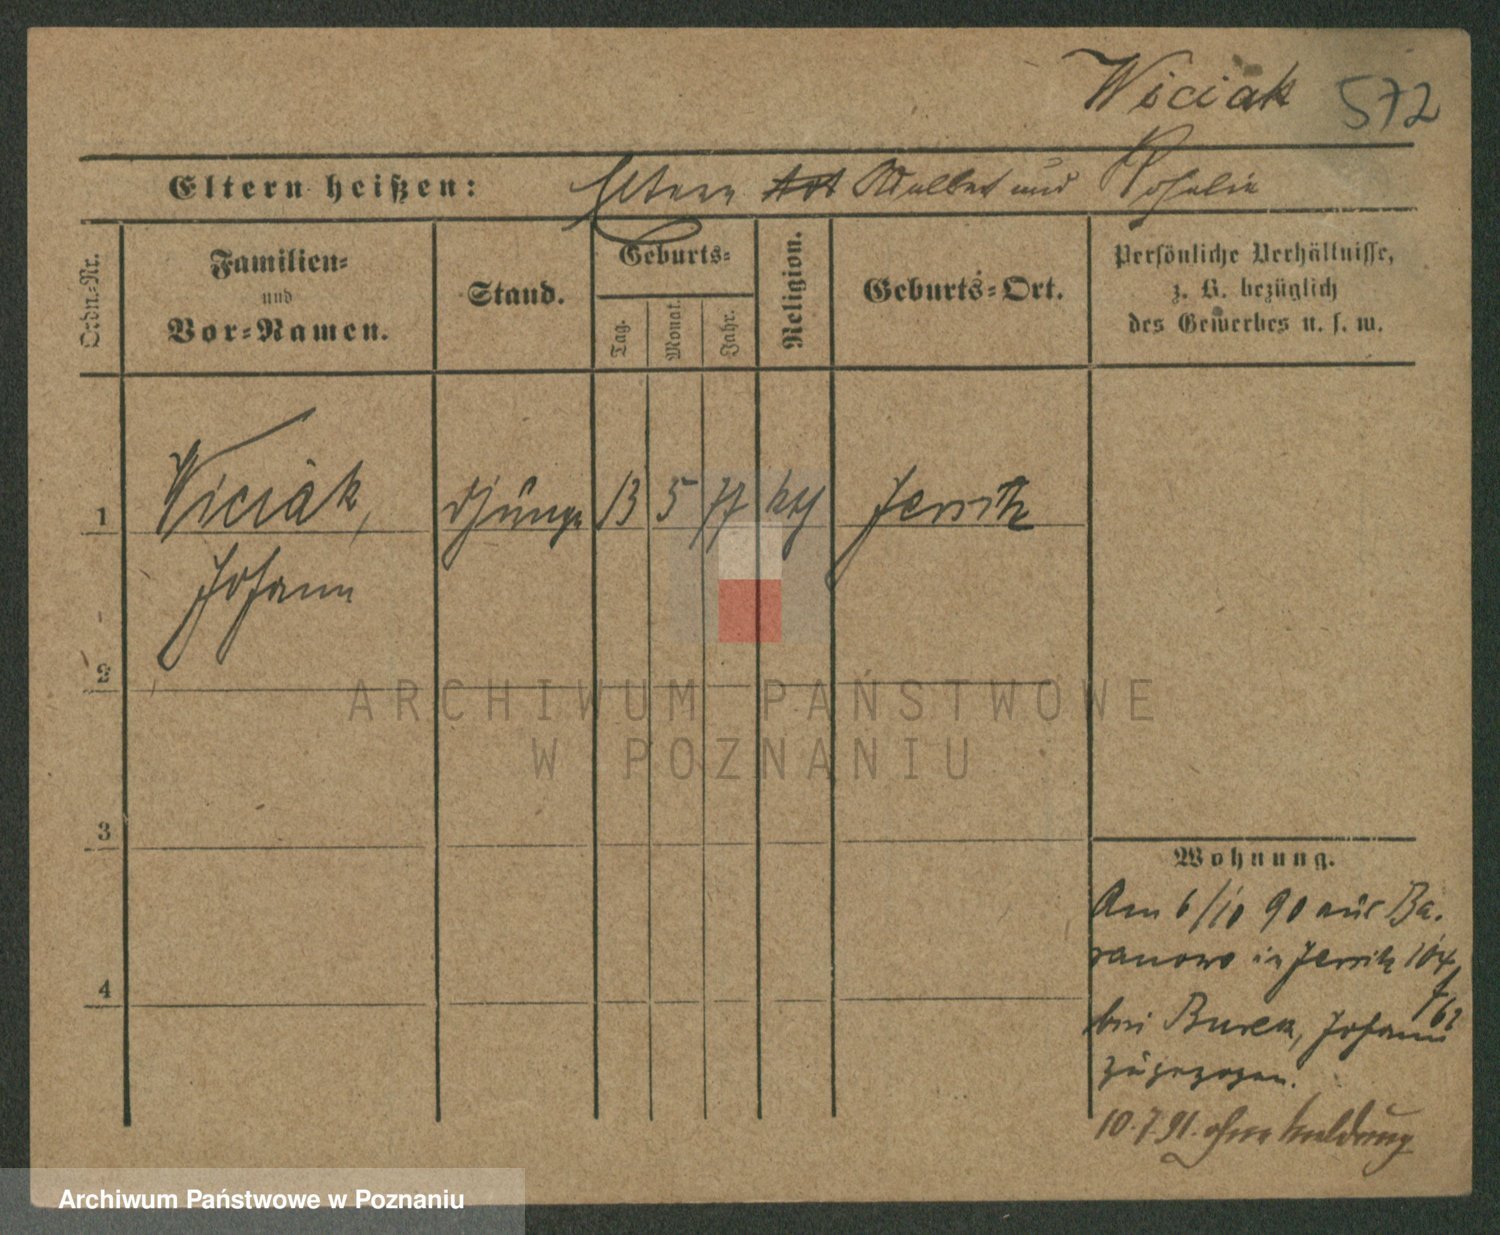 Wiciak 572
Eltern heißen: Eltern und Rosalie
Ordn.-Nr.
Familien-
und
Vor-Namen.
Stand.
Geburts-
Tag.
Monat.
Jahr.
Religion.
Geburts-Ort.
Persönliche Verhältnisse,
z. B. bezüglich
des Gewerbes u. s. w.
1 Wiciak, 13 5 77 kth Jersitz
Johann
2
3
4
Wohnung.
Am 6/10 90 aus Ba-
ranowo in Jersitz 104
bei Johann
zugezogen.
10.7.91. ohne Meldung
ARCHIWUM PAŃSTWOWE
W POZNANIU
Archiwum Państwowe w Poznaniu